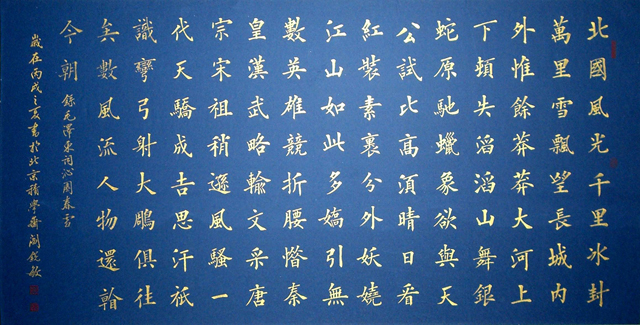 北國風光千里冰封
萬里雪飄望長城内
外惟餘莽莽大河上
下頓失滔滔山舞銀
蛇原馳蠟象欲與天
公試比高須晴日看
紅裝素裹分外妖嬈
江山如此多嬌引無
數英雄競折腰惜秦
皇漢武略輸文采唐
宗宋祖稍遜風騷一
代天驕成吉思汗祇
識彎弓射大鵰俱往
矣數風流人物還看
今朝
錄毛澤東詞沁園春雪
歲在丙戌之夏書於北京積學齋